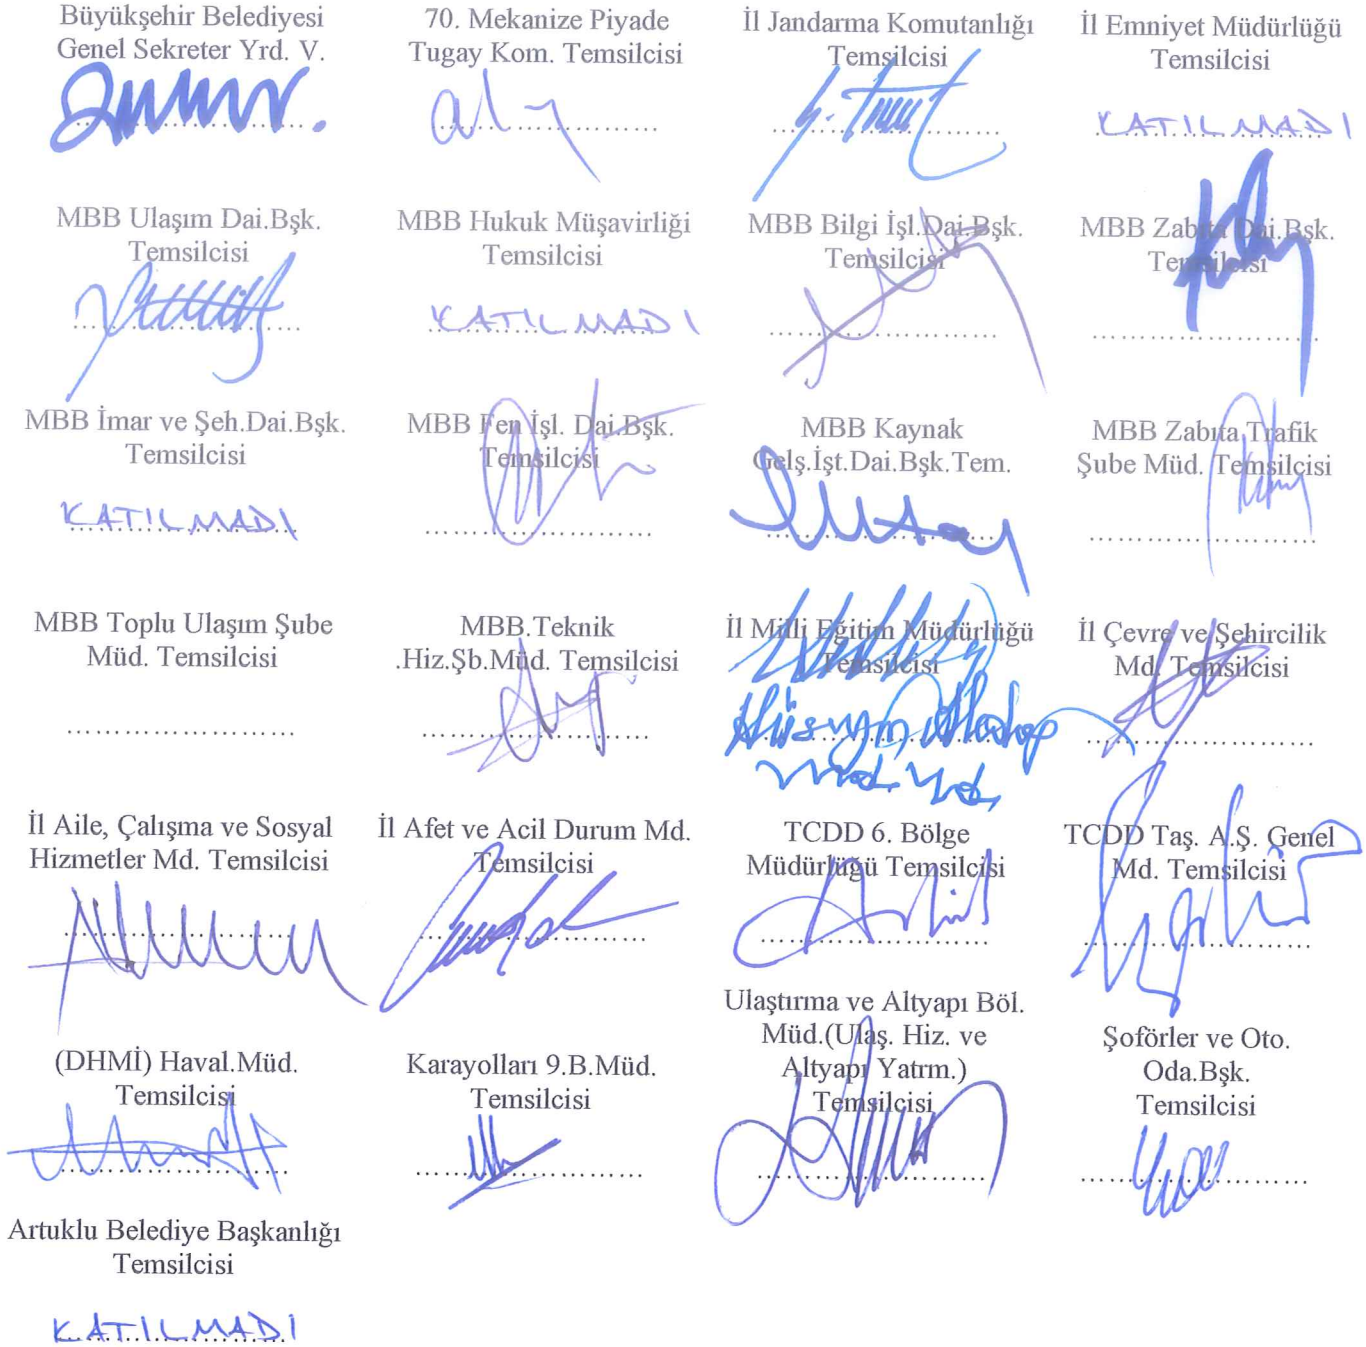 Büyükşehir Belediyesi
Genel Sekreter Yrd. V.
70. Mekanize Piyade
Tugay Kom. Temsilcisi
İl Jandarma Komutanlığı
Temsilcisi
İl Emniyet Müdürlüğü
Temsilcisi
KATILMADI
MBB Ulaşım Dai.Bşk.
Temsilcisi
MBB Hukuk Müşavirliği
Temsilcisi
KATILMADI
MBB Bilgi İşl.Dai.Bşk.
Temsilcisi
MBB Zabıta Dai.Bşk.
Temsilcisi
MBB İmar ve Şeh.Dai.Bşk.
Temsilcisi
KATILMADI
MBB Fen İşl. Dai.Bşk.
Temsilcisi
MBB Kaynak
Gelş.İşt.Dai.Bşk.Tem.
MBB Zabıta Trafik
Şube Müd. Temsilcisi
MBB Toplu Ulaşım Şube
Müd. Temsilcisi
MBB Teknik
.Hiz.Şb.Müd. Temsilcisi
İl Milli Eğitim Müdürlüğü
Temsilcisi
İl Çevre ve Şehircilik
Md. Temsilcisi
İl Aile, Çalışma ve Sosyal
Hizmetler Md. Temsilcisi
İl Afet ve Acil Durum Md.
Temsilcisi
TCDD 6. Bölge
Müdürlüğü Temsilcisi
TCDD Taş. A.Ş. Genel
Md. Temsilcisi
(DHMİ) Haval.Müd.
Temsilcisi
Karayolları 9.B.Müd.
Temsilcisi
Ulaştırma ve Altyapı Böl.
Müd.(Ulaş. Hiz. ve
Altyapı Yatrm.)
Temsilcisi
Şoförler ve Oto.
Oda.Bşk.
Temsilcisi
Artuklu Belediye Başkanlığı
Temsilcisi
KATILMADI